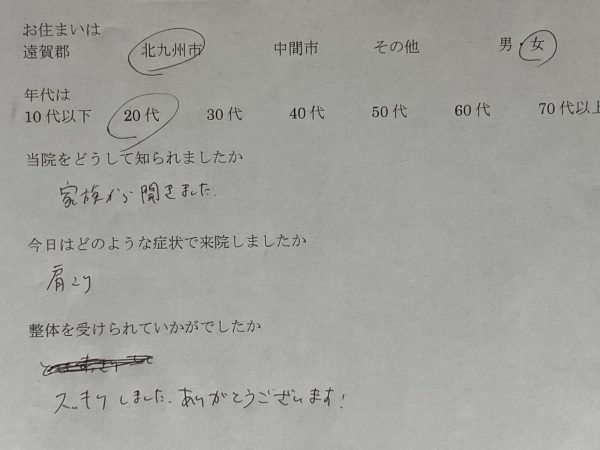 お住まいは
遠賀郡 北九州市 中間市 その他 男・女
年代は
10代以下 20代 30代 40代 50代 60代 70代以上
当院をどうして知られましたか
家族から聞きました.
今日はどのような症状で来院しましたか
肩こり
整体を受けられていかがでしたか
スッキリしました.ありがとうございます!